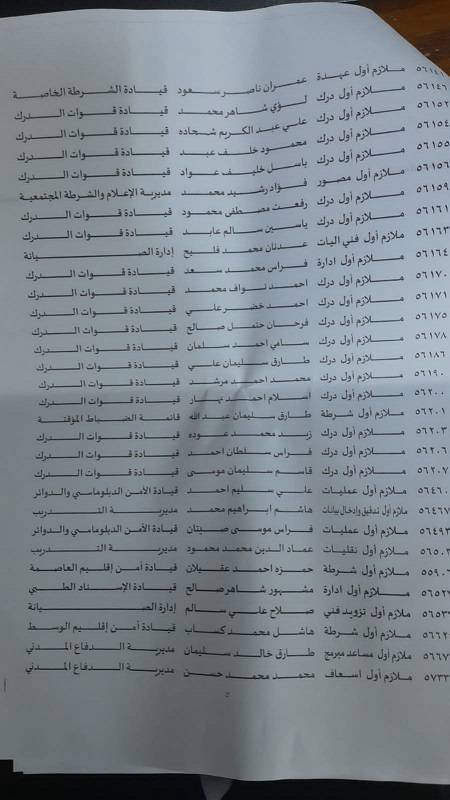 ٥٦١٤١ ملازم أول عهدة عمران ناصر سعود قيادة الشرطة الخاصة
٥٦١٤٦ ملازم أول درك لؤي شاهر محمد قيادة قوات الدرك
٥٦١٥٢ ملازم أول درك علي عبد الكريم شحاده قيادة قوات الدرك
٥٦١٥٤ ملازم أول درك محمود خلف عبد قيادة قوات الدرك
٥٦١٥٥ ملازم أول درك باسل خليف عواد قيادة قوات الدرك
٥٦١٥٦ ملازم أول مصور فؤاد رشيد محمد مديرية الإعلام والشرطة المجتمعية
٥٦١٥٩ ملازم أول درك رفعت مصطفى محمود قيادة قوات الدرك
٥٦١٦١ ملازم أول درك ياسين سالم عابد قيادة قوات الدرك
٥٦١٦٣ ملازم أول فني اليات عدنان محمد فليح إدارة الصيانة
٥٦١٦٤ ملازم أول ادارة فراس محمد سعد قيادة قوات الدرك
٥٦١٧٠ ملازم أول درك احمد نواف محمد قيادة قوات الدرك
٥٦١٧١ ملازم أول درك احمد خضر علي قيادة قوات الدرك
٥٦١٧٥ ملازم أول درك فرحان حتمل صالح قيادة قوات الدرك
٥٦١٧٨ ملازم أول درك سامي احمد سلمان قيادة قوات الدرك
٥٦١٨٦ ملازم أول درك طارق سليمان علي قيادة قوات الدرك
٥٦١٩٠ ملازم أول درك محمد احمد مرشد قيادة قوات الدرك
٥٦٢٠٠ ملازم أول درك اسلام احمد نهار قيادة قوات الدرك
٥٦٢٠١ ملازم أول شرطة طارق سليمان عبد الله قائمة الضباط المؤقتة
٥٦٢٠٣ ملازم أول درك زيد محمد عوده قيادة قوات الدرك
٥٦٢٠٦ ملازم أول درك فراس سلطان احمد قيادة قوات الدرك
٥٦٢٠٧ ملازم أول درك قاسم سليمان موسى قيادة قوات الدرك
٥٦٤٦٠ ملازم أول عمليات علي سليم احمد قيادة الأمن الدبلوماسي والدوائر
٥٦٤٦٧ ملازم أول تدقيق وإدخال بيانات هاشم ابراهيم محمد مديرية التدريب
٥٦٤٩٣ ملازم أول عمليات فراس موسى صيتان قيادة الأمن الدبلوماسي والدوائر
٥٦٥٠٣ ملازم أول نقليات عماد الدين محمد محمود مديرية التدريب
٥٥٩٠٢ ملازم أول شرطة حمزه احمد عقيلان قيادة أمن إقليم العاصمة
٥٦٥٢٧ ملازم أول ادارة مشهور شاهر صالح قيادة الإسناد الطبي
٥٦٥٣ ملازم أول تزويد فني صلاح علي سالم إدارة الصيانة
٥٦٦٢ ملازم أول شرطة هاشل محمد كساب قيادة أمن إقليم الوسط
٥٦٦٧ ملازم أول مساعد مبرمج طارق خالد سليمان مديرية الدفاع المدني
٥٧٣٣ ملازم أول اسعاف محمد محمد حسن مديرية الدفاع المدني